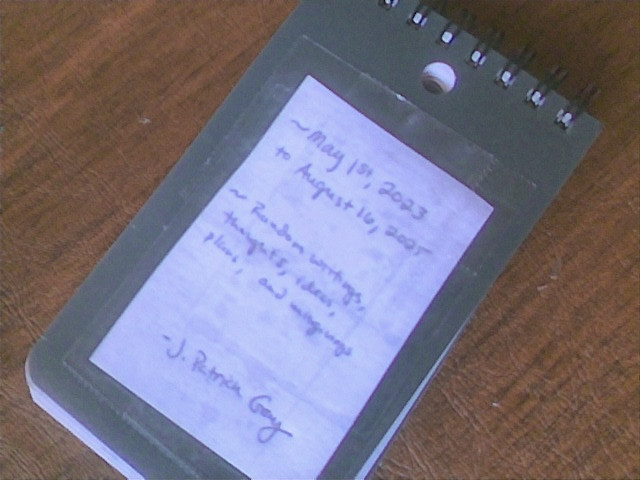 ~ May 1st, 2023
to August 16, 2025
~ Random writings,
thoughts, ideas,
plans, and
-J. Patrick Gay